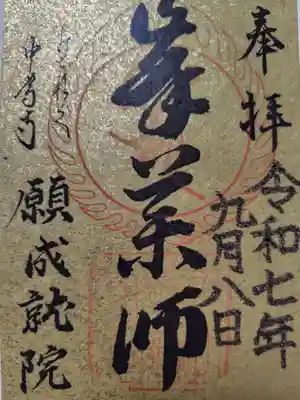 奉拝
令和七年
九月八日
峯薬師
中学寺
願成就院